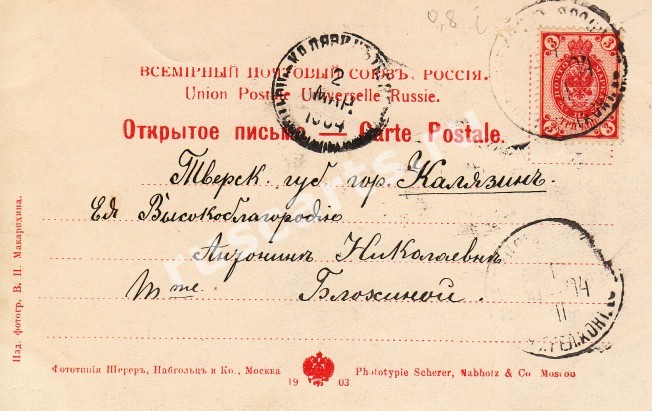 0,8
ВСЕМІРНЫЙ ПОЧТОВЫЙ СОЮЗЪ. РОССІЯ.
Union Postale Universelle Russie.
Открытое письмо. — Carte Postale.
КАЛЯЗИНЪ
2
МАР
1904
3 3
3 3
Тверск. губ. гор. Калязинъ.
Ея Высокоблагородію
Антонинѣ Николаевнѣ
Mme Блохиной.
14
II
Изд. фотогр. В. П. Макарихина.
Фототипія Шереръ, Набгольцъ и Ко., Москва
19 03
Phototypie Scherer, Nabholz & Co Moscou
rusearts.ru